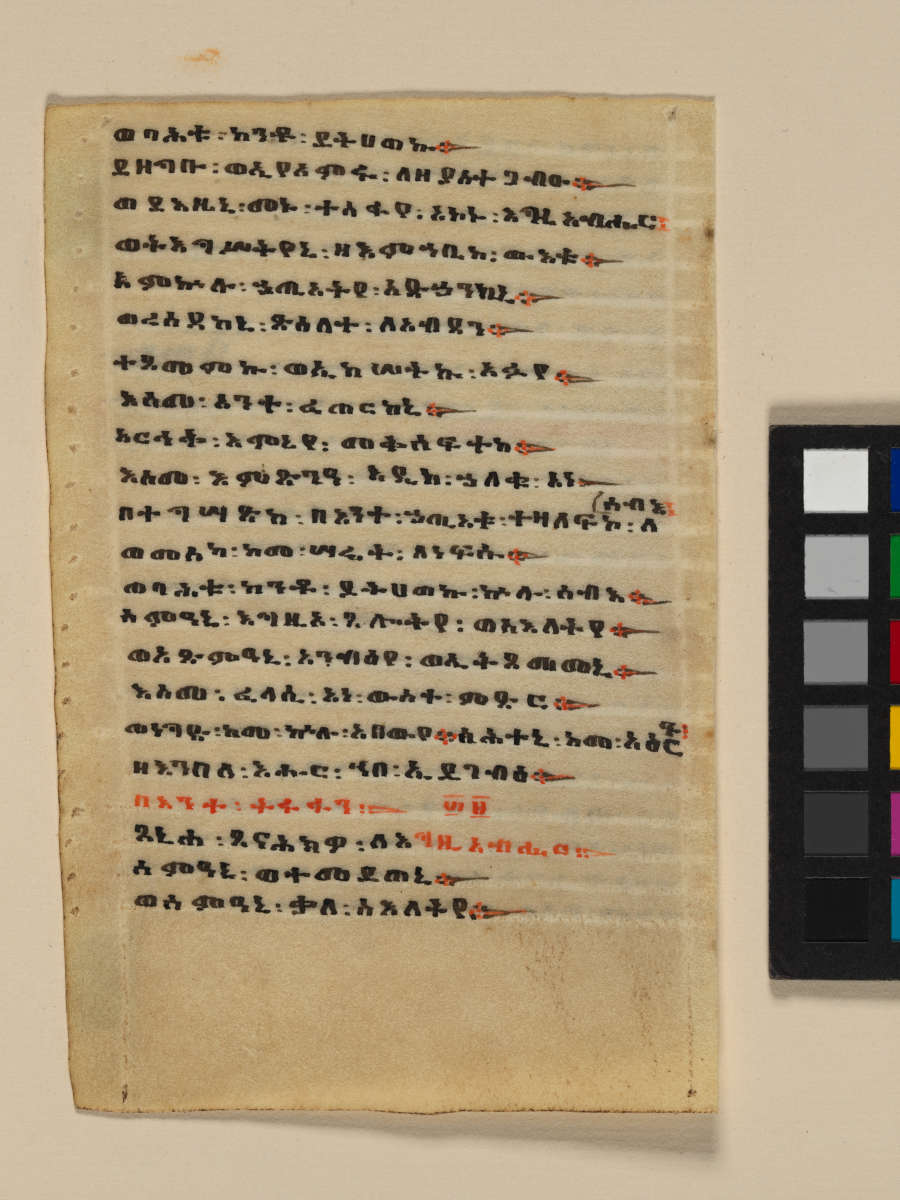 ወባሕቱ፡ከንቶ፡ይትሀወኩ።
ይዘግቡ፡ወኢየአምሩ፡ለዘያስተጋብኡ።
ወይእዜኒ፡መኑ፡ተስፋየ፡አኮኑ፡እግዚአብሔር፡
ወትእግሥትየኒ፡ዘእምኀቤከ፡ውእቱ።
እምኵሉ፡ኃጢአትየ፡አድኅንከኒ።
ወረሰይከኒ፡ጽዕለተ፡ለአብዳን።
ተጸመምኩ፡ወኢከሠትኩ፡አፉየ።
እስመ፡አንተ፡ፈጠርከኒ።
አርኅቅ፡እምኔየ፡መቅሰፍተከ።
እስመ፡እምጽንዓ፡እዴከ፡ኃለቁ፡አነ።
(ሰብእ፡
በተግሣጽከ፡በእንተ፡ኃጢአቱ፡ተዛለፍኮ፡ለ
ወመሰከ፡ከመ፡ሣሬት፡ለነፍሱ።
ወባሕቱ፡ከንቶ፡ይትሀወኩ፡ኵሉ፡ሰብእ።
ስምዓኒ፡እግዚኦ፡ጸሎትየ፡ወስእለትየ።
ወአጽምዓኒ፡አንብዕየ፡ወኢትጸመመኒ።
እስመ፡ፈላሲ፡አነ፡ውስተ፡ምድር።
ወነግድ፡ከመ፡ኵሉ፡አበውየ።ስሕተኒ፡ከመ፡አዕርፍ፡
ዘእንበለ፡እሑር፡ኀበ፡ኢይገብዕ።
በእንተ፡
ጸኒሐ፡ጸናሕክዎ፡ለእግዚአብሔር።
ሰምዓኒ፡ወተመይጠኒ።
ወሰምዓኒ፡ቃለ፡ስእለትየ።